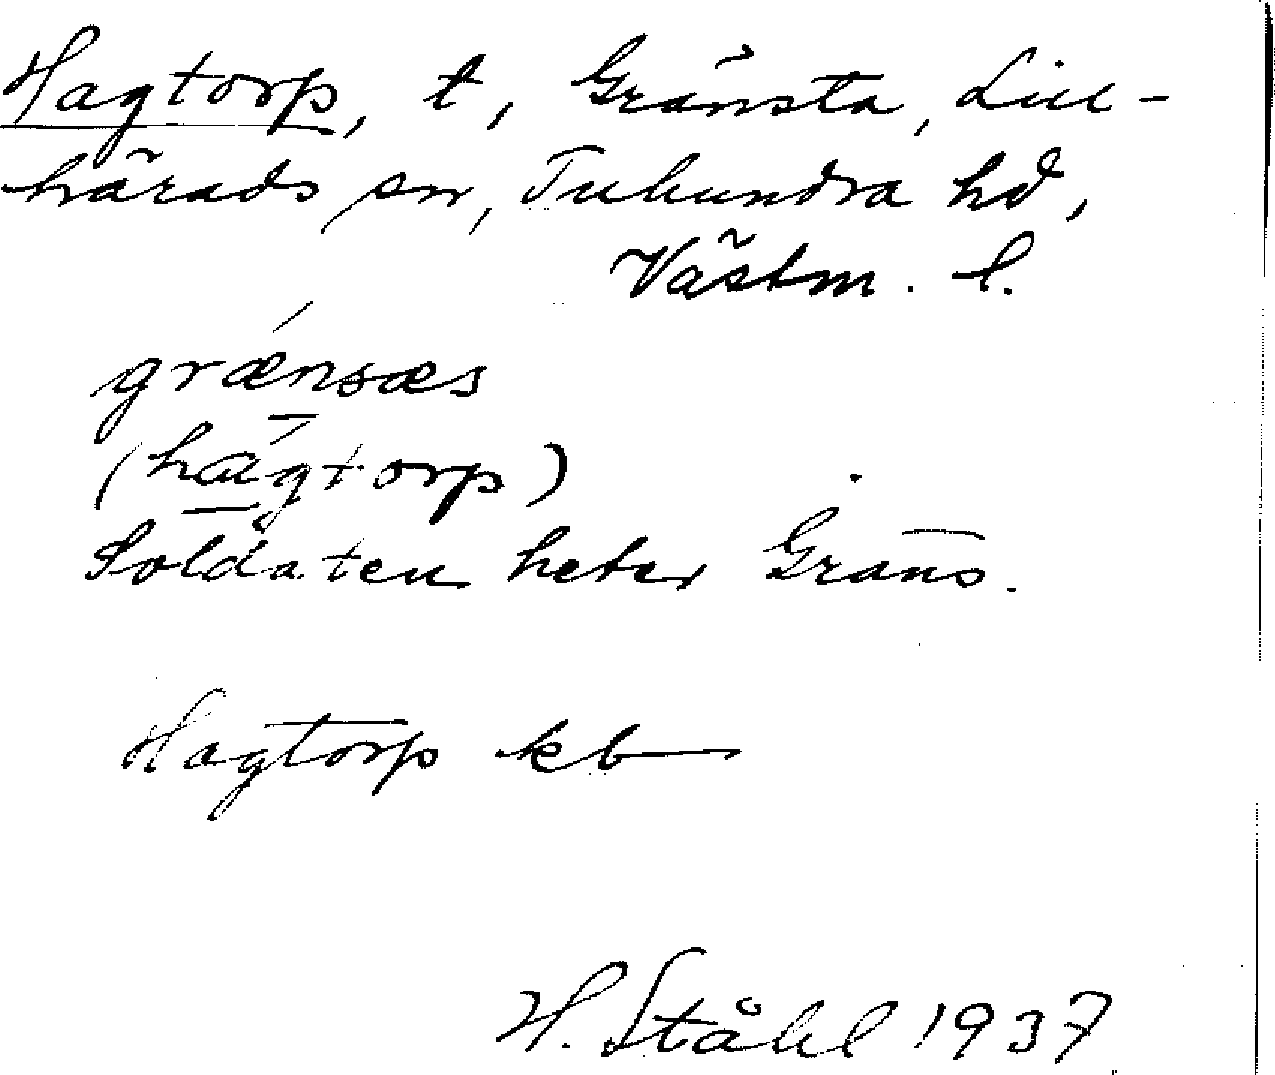 Hagtorp, t, Gränsta, Lill-
härads sn, Tuhundra hd,
Västm. l.
grænsæs
(hagtorp)
Soldaten heter Gräns.
Hagtorp kb
H. Ståhl 1937